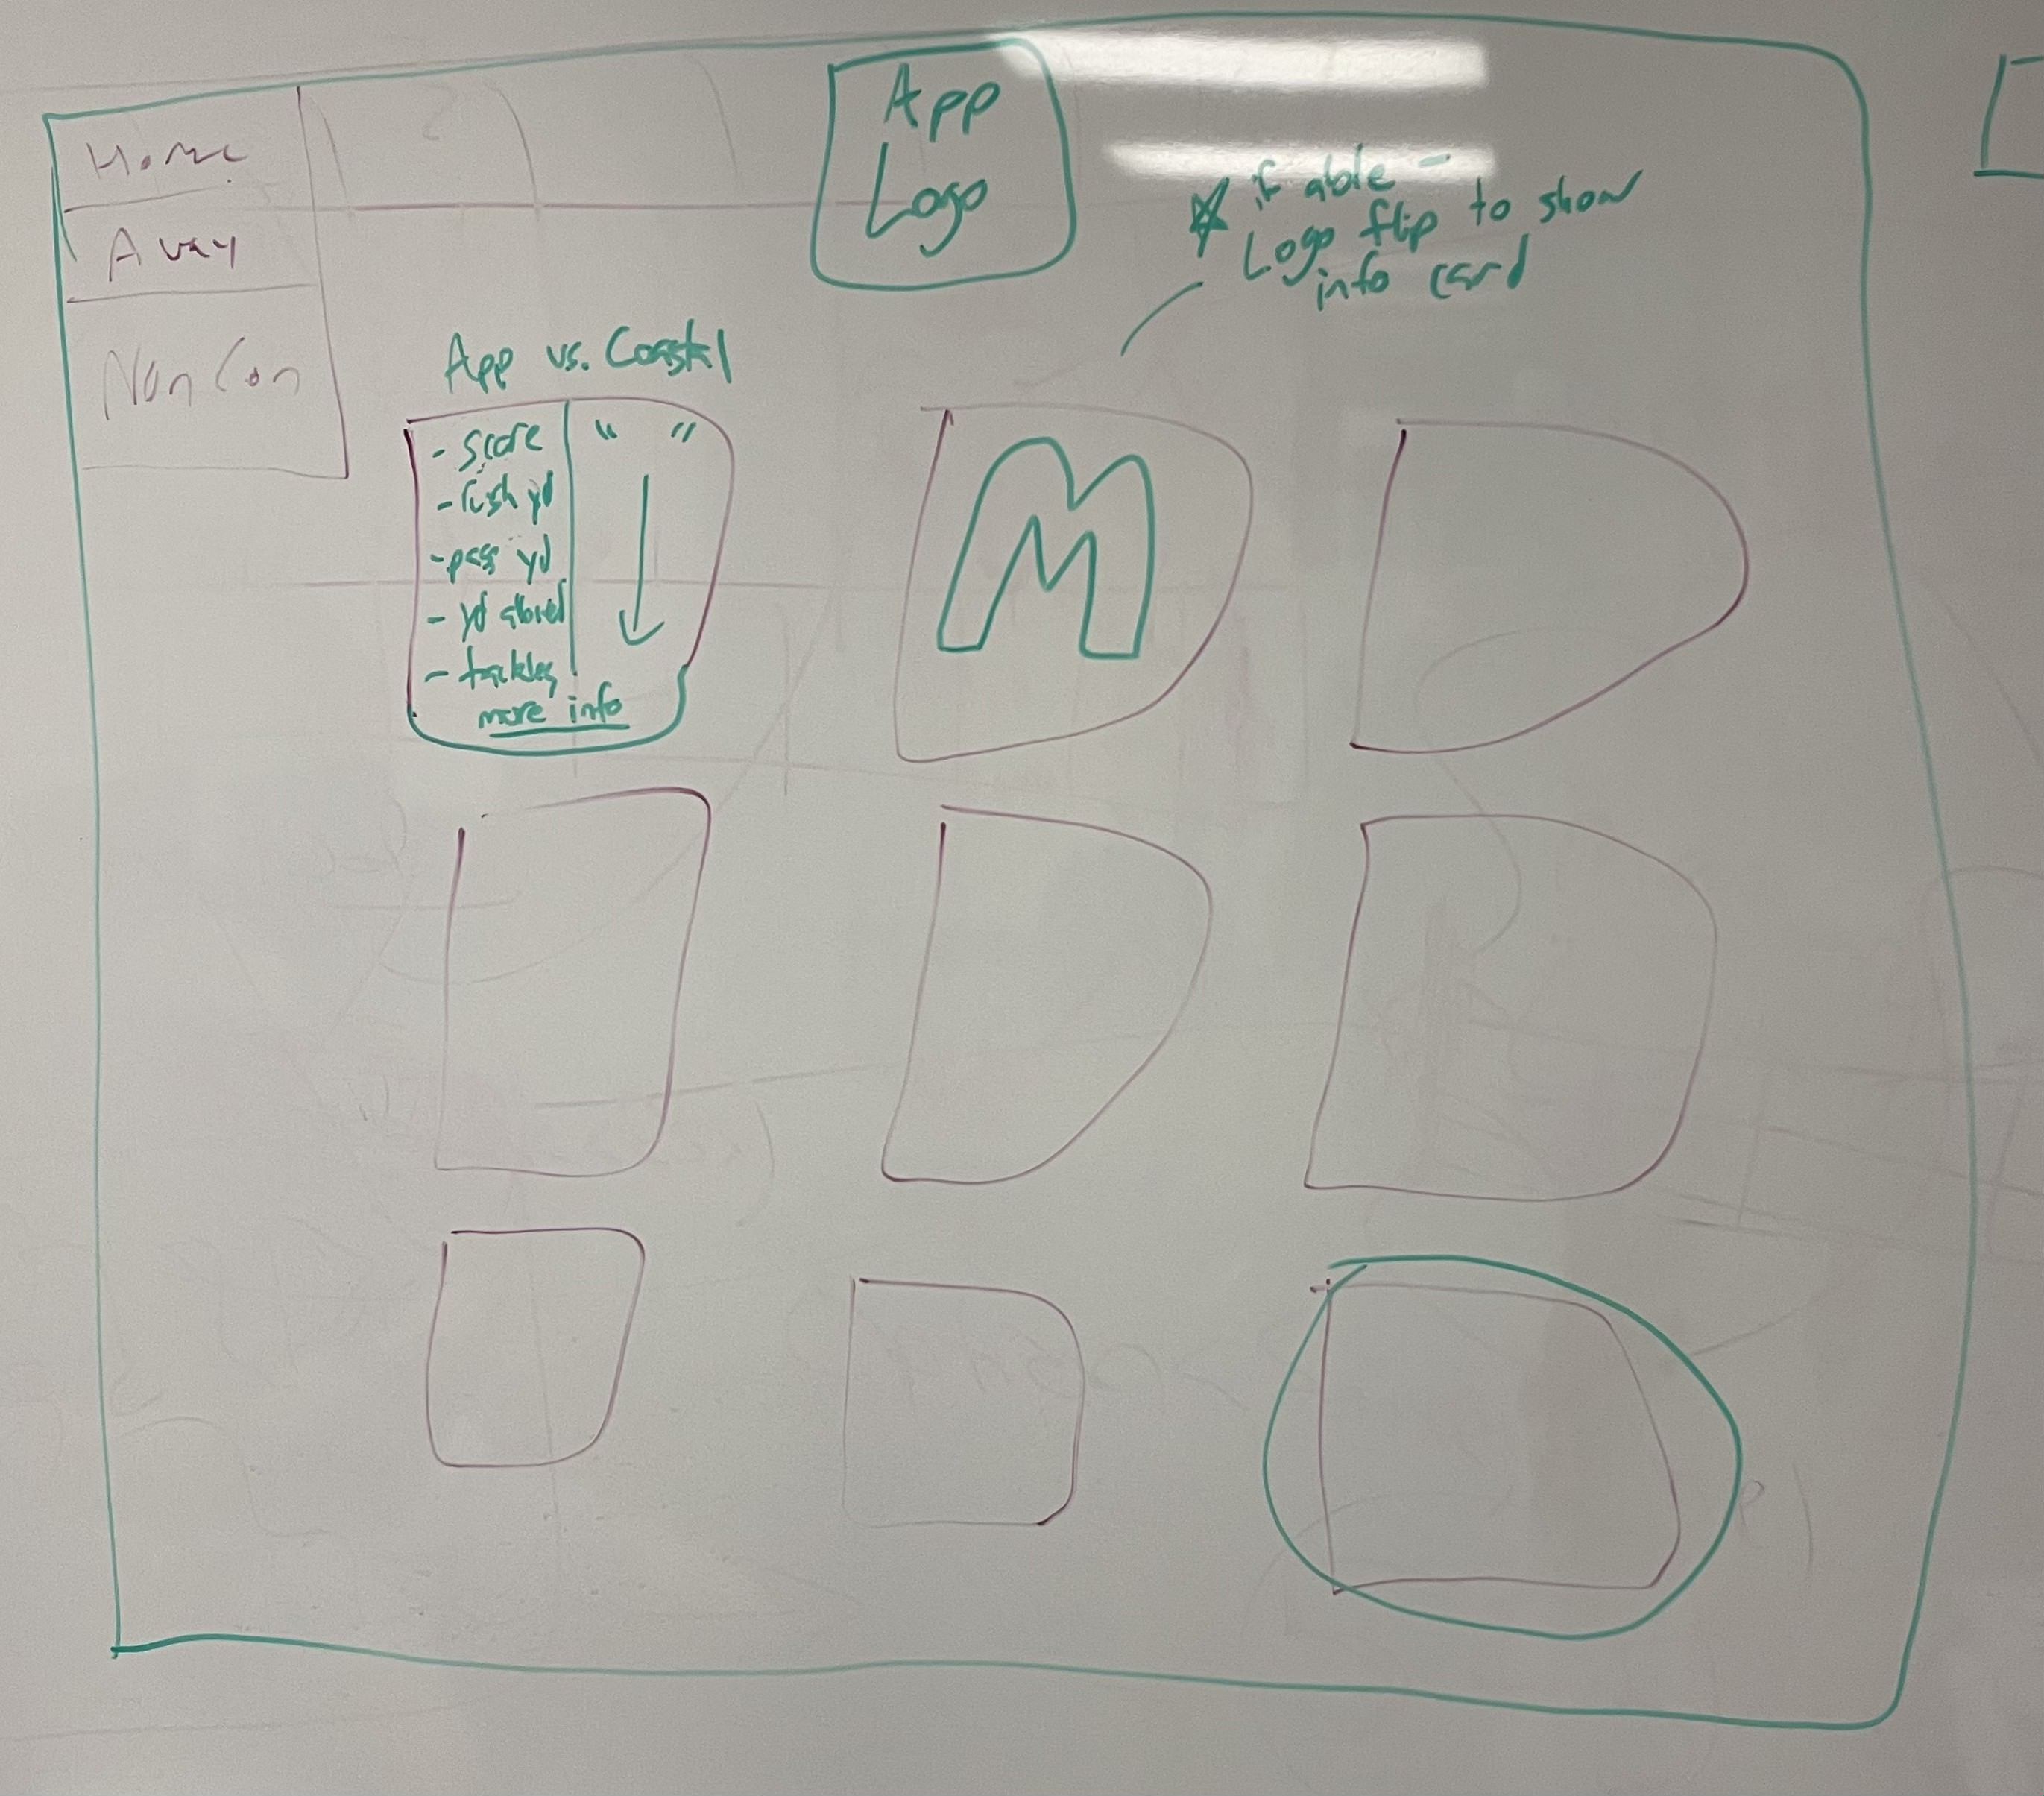 Home
Away
Non Con
App
Logo
if able -
Logo flip to show
info card
App vs. Coastal
- score " "
- rush yd
- pass yd
- yd allowed
- tackles
more info
M